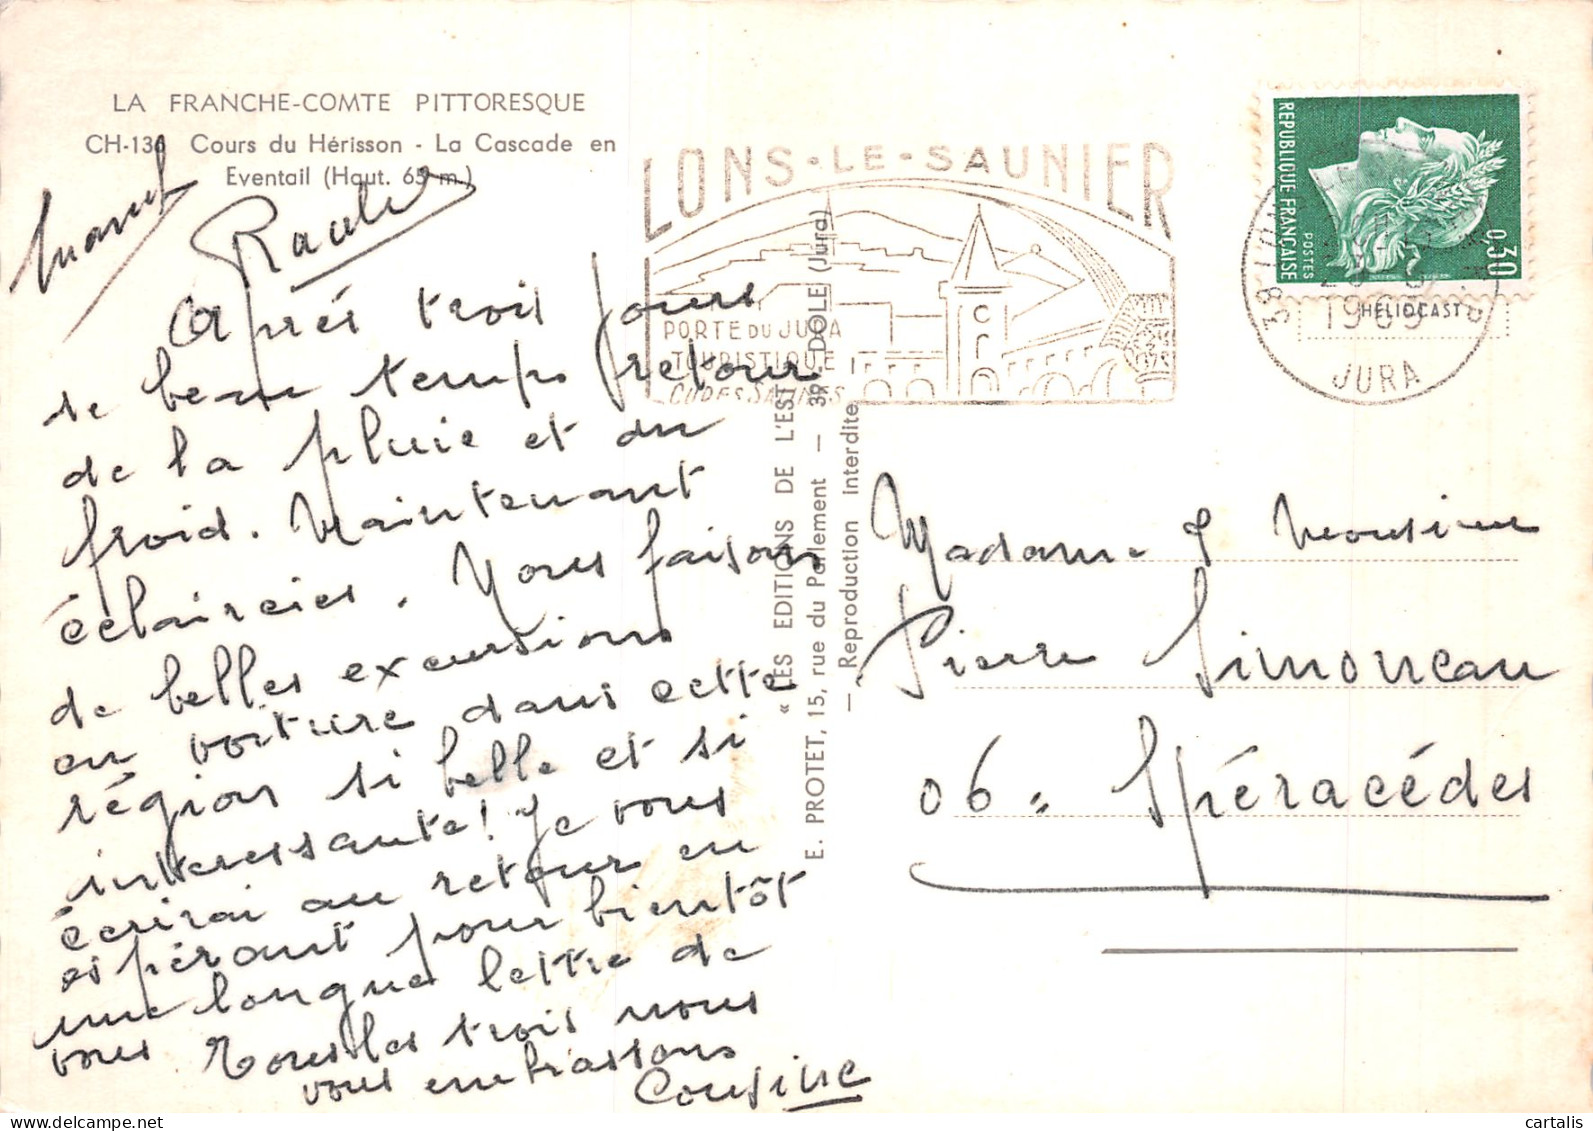 LA FRANCHE-COMTE PITTORESQUE
CH-136 Cours du Hérisson - La Cascade en
Eventail (Haut. 65 m.)
Après trois jours
de beau temps retour
de la pluie et du
froid. Maintenant
éclaircies. Nous faisons
de belles excursions
en voiture dans cette
région si belle et si
interessante! Je vous
écrirai au retour en
espérant pour bientôt
une longue lettre de
vous Tous les trois nous
vous embrassons
Cousine
« LES EDITIONS DE L'EST »
E. PROTET, 15, rue du Parlement — 39 - DOLE (Jura)
— Reproduction Interdite
LONS-LE-SAUNIER
PORTE DU JURA
TOURISTIQUE
CURES SALINES
REPUBLIQUE FRANÇAISE
POSTES
0,30
HELIOCAST
1969
JURA
Madame & Monsieur
Pierre Simoneau
06 = Spéracédes
cartalis
delcampe.net